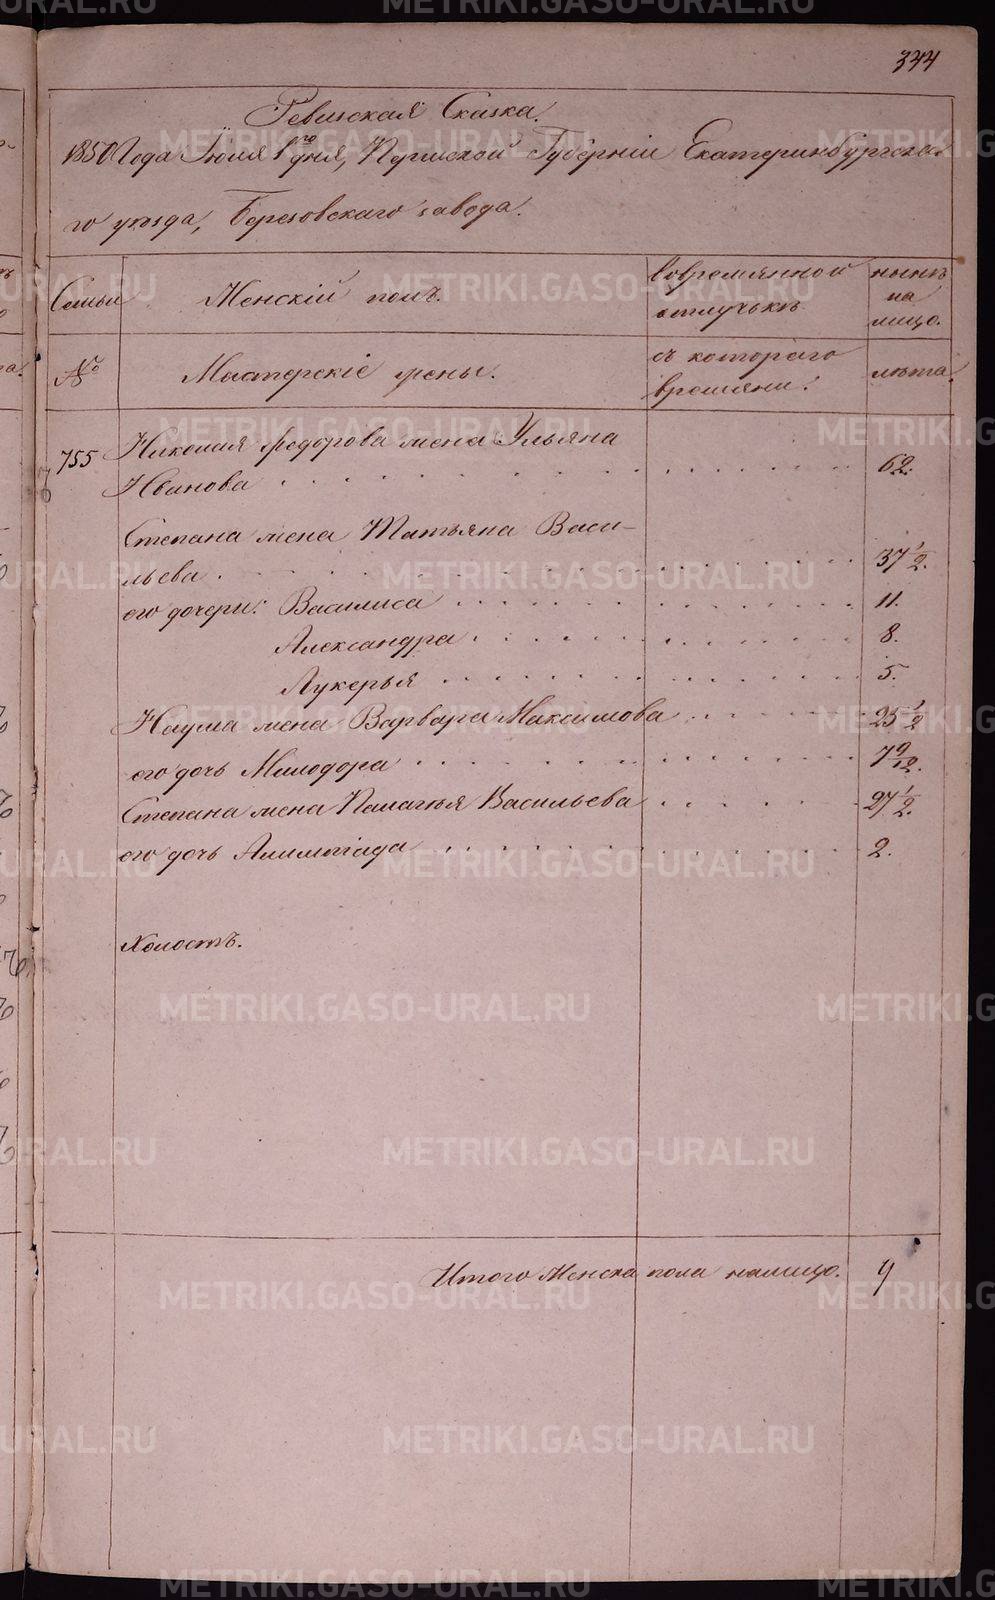 344
Ревизская Сказка.
1850 Года Июля 1го дня, Пермской Губерніи Екатеринбургска-
го уѣзда, Березовскаго завода.
Семьи
Женскій полъ.
вовремянной
отлучькѣ
нынѣ
на
лицо.
№
Мастерскіе жены.
съ котораго
времяни.
лѣта.
755
Николая Федорова жена Ульяна
Иванова
62.
Степана жена Татьяна Васи-
льева
37 1/2.
его дочери: Василиса
11.
Александра
8.
Лукерья
5.
Наума жена Варвара Максимова
25 1/2
его дочь Милодора
7 9/12.
Степана жена Палагъя Васильева
27 1/2.
его дочь Алимпіада
2.
Холостъ.
Итого Женска пола налицо.
9
METRIKI.GASO-URAL.RU